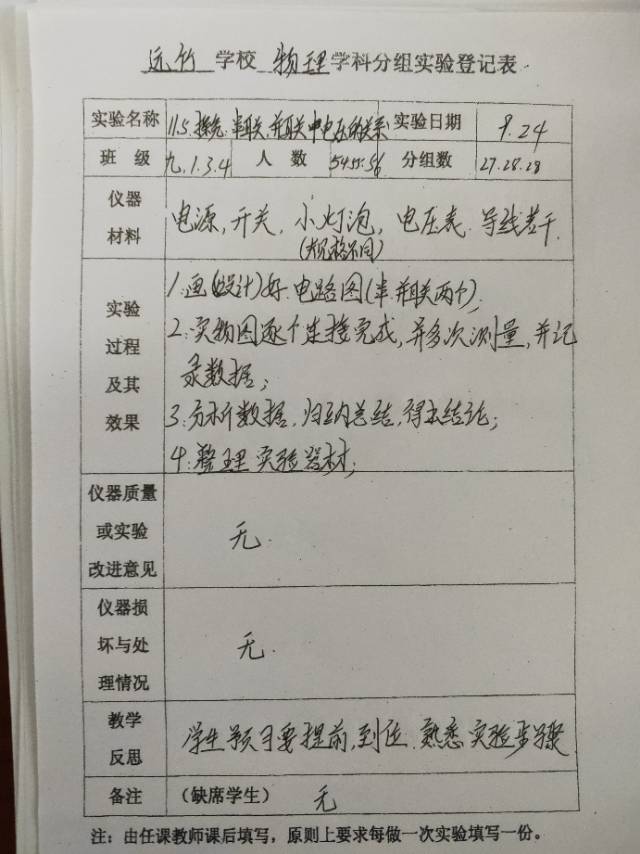 远竹 学校 物理 学科分组实验登记表
实验名称 11.5 探究串联、并联中电压的关系 实验日期 9.24
班 级 九.1.3.4 人 数 54.55.56 分组数 27.28.28
仪器
材料
电源,开关,小灯泡,电压表.导线若干.
(规格不同)
实验
过程
及其
效果
1.画(设计)好电路图(串.并联两个).
2.实物图逐个连接完成,并多次测量,并记
录数据;
3.分析数据,归纳总结,得出结论;
4.整理实验器材;
仪器质量
或实验
改进意见
无.
仪器损
坏与处
理情况
无.
教学
反思
学生预习要提前,到位.熟悉实验步骤
备注 (缺席学生) 无
注:由任课教师课后填写,原则上要求每做一次实验填写一份。